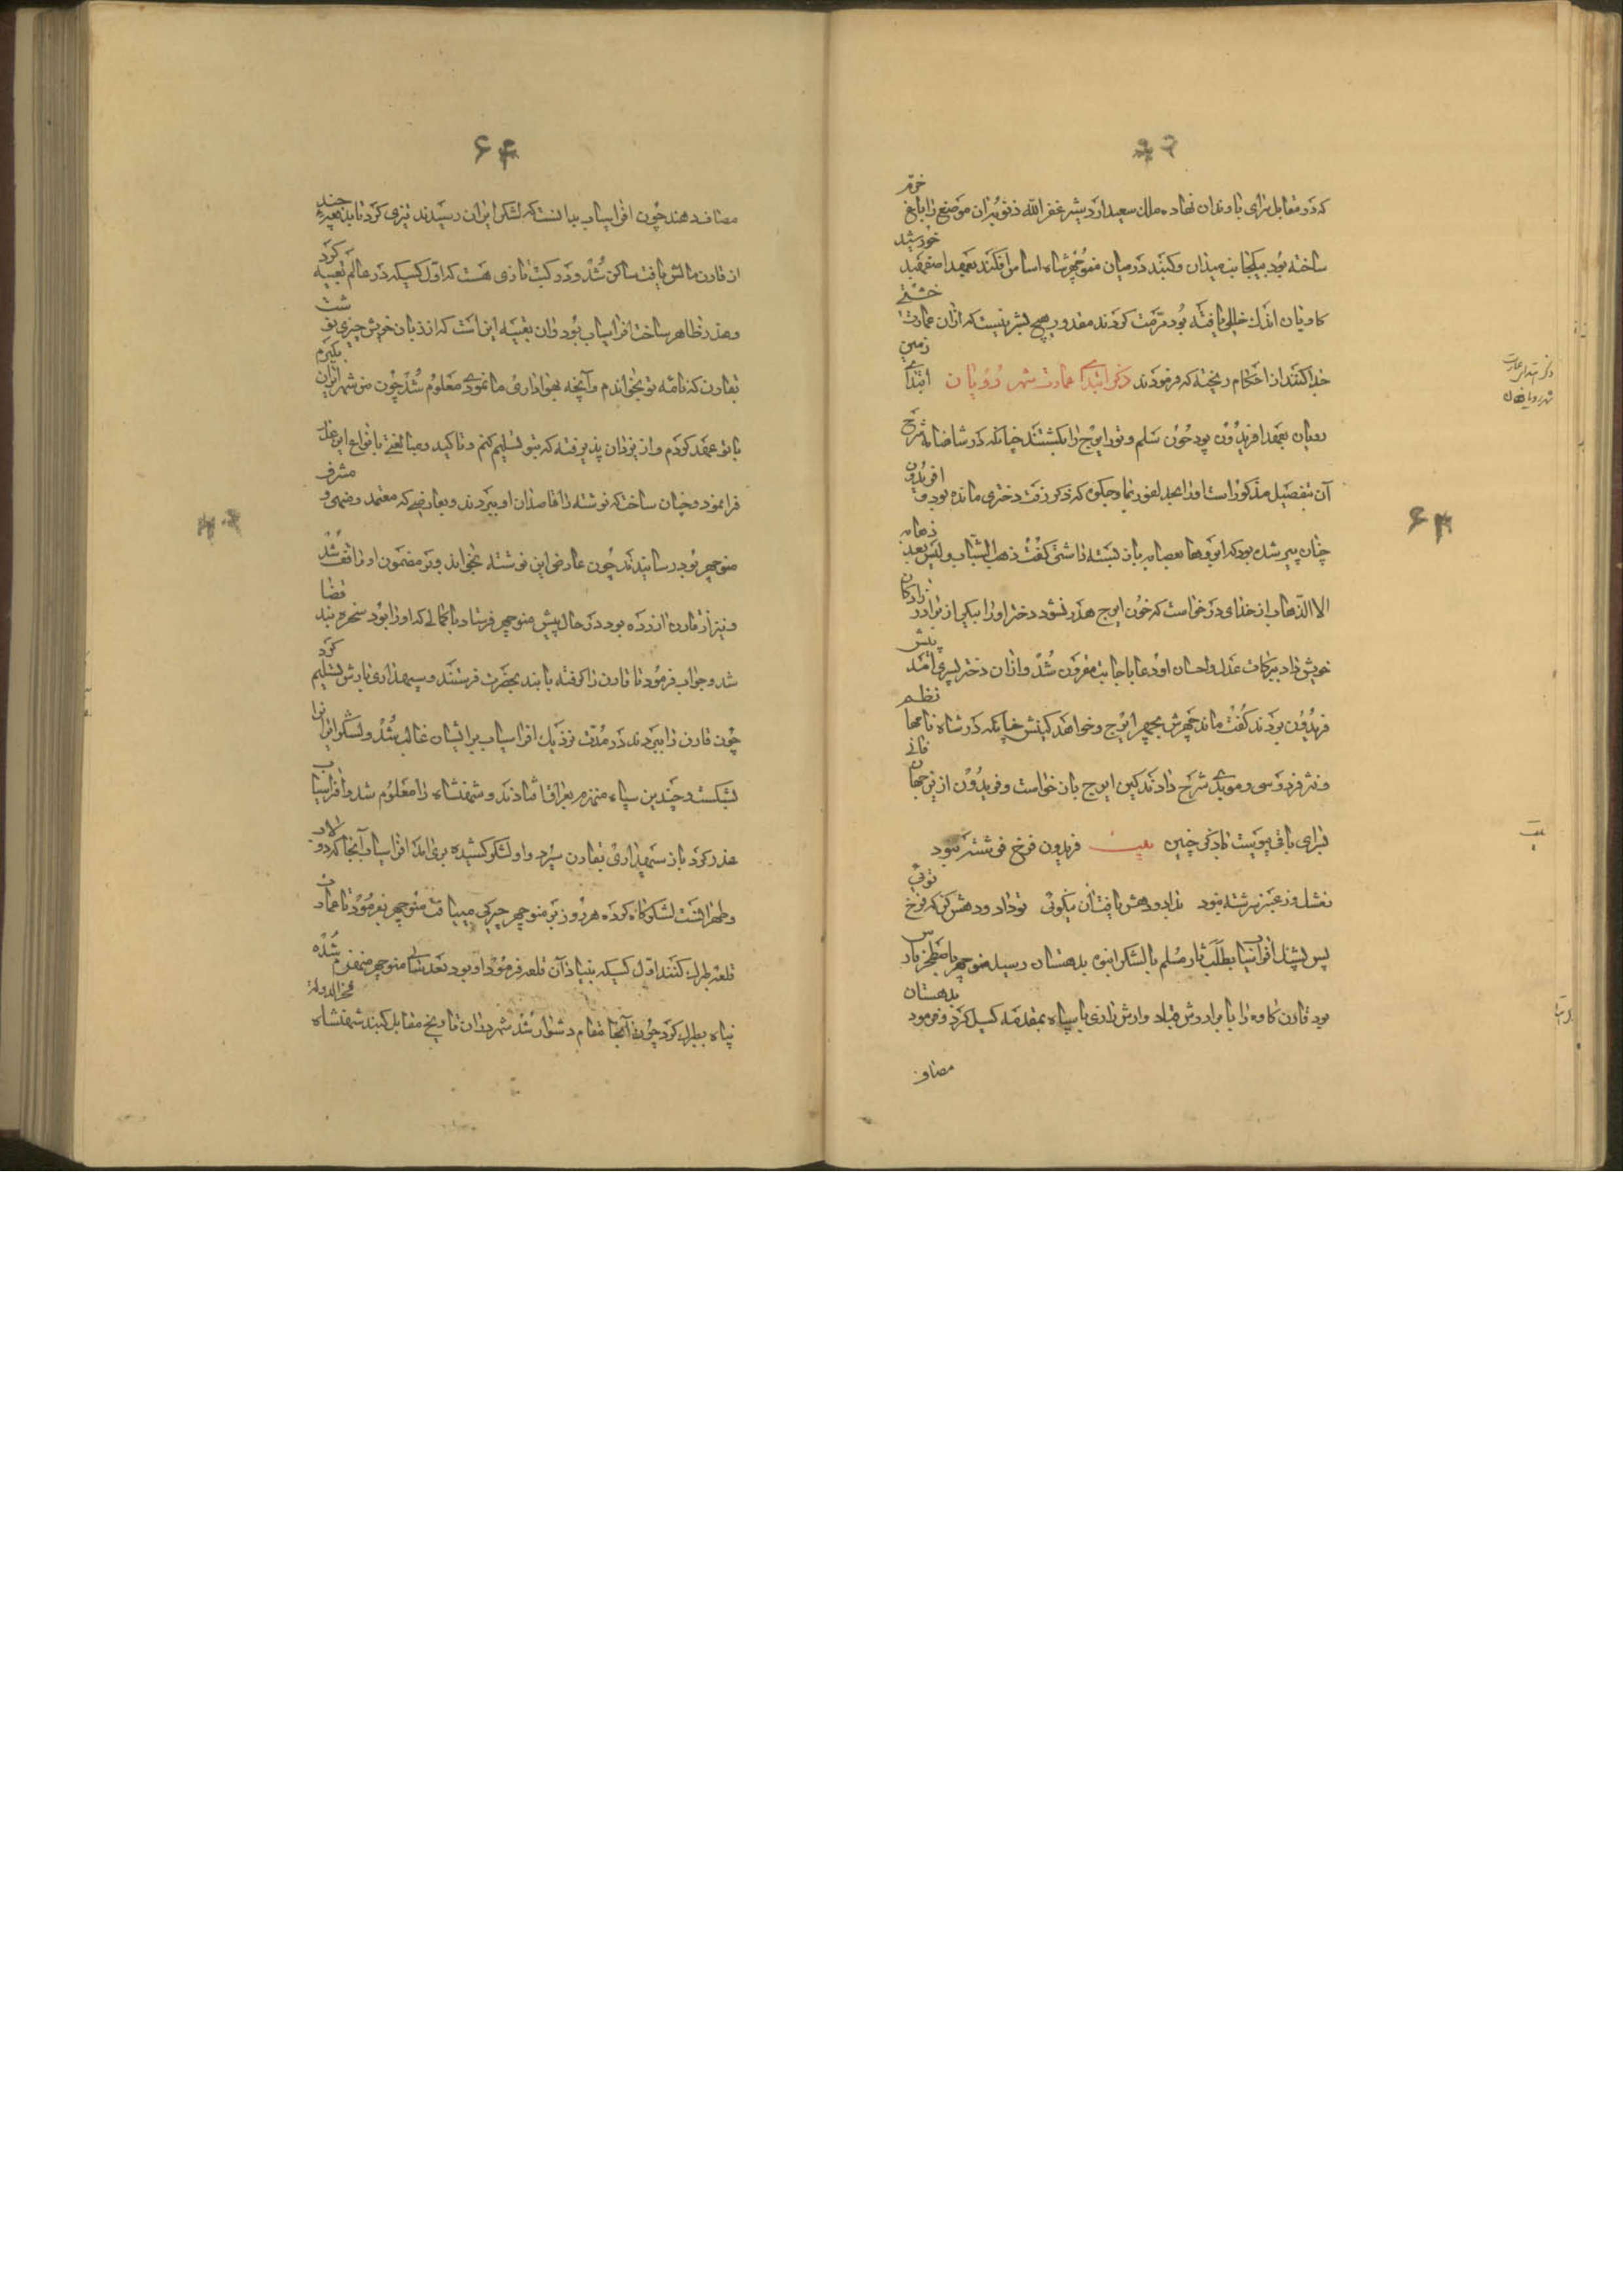 که در مقابل سرای باوندان نهاده ملک سعید اردشیر غفر الله ذنوبه بران موضع را باغ خرم
ساخته بود بیکجانب میدان و گنبد در میان منوچهر شاه اساس افکند بعهد اصفهبد خورشید
کاویان اندک خللی یافته بود مرمت کردند مقدور هیچ بشر نیست که ازان عمارت خشتی
جدا کنند از احکام ریخته که فرمودند ذکر ابتدای عمارت شهر رویان ابتدای زمین
رویان بعهد افریدون بود چون سلم و تور ایرج را بکشتند چنانکه در شاهنامه شرح
آن بتفصیل مذکور است اورا بحد لفور بماوجکوه که ذکر رفت دختری مانده بود و افریدون
چنان پیر شده بود که ابروها بعصابه باز بسته داشتی گفت ذهب الشباب و لیس بعد ذهابه
الا الذهاب از خدای درخواست که خون ایرج هدر نشود دختر اورا بیکی از برادر زادگان
خویش داد ببرکات عدل و احسان او دعا باجابت مقرون شد و ازان دختر پسری آمد پیش
فریدون بردند گفت ماند چهرش بچهر ایرج و خواهد کینش چنانکه در شاه نامها نظم
و نثر فردوسی و مویدی شرح دادند کین ایرج باز خواست و فریدون ازین جهان فانی
بسرای باقی پیوست یادگی چنین بیت فریدون فرخ فرشته نبود
بمشک و بعنبر سرشته نبود بداد و دهش یافت آن نیکوئی تو داد و دهش کن که فرخ توئی
پس پشنگ افراسیاب بطلب ثار سلم با لشکر انبوه بدهستان رسید منوچهر باصطخر پارس
بود قارن کاوه را با برادرش قباد و آرش رازی با سپاه بمقدمه گسیل کرد و فرمود بدهستان
مصاف
۶۴
ذکر ابتدای عمارت
شهر رویان
بیت
۶۴
مصاف دهند چون افراسیاب بدانست که لشکر ایران رسیدند تیزی کرد تا بدبعید چند
از قارن مالش یافت ساکن شد و در کتب تازی هست که اول کسیکه در عالم تعبیه کرد
و غدر ظاهر ساخت افراسیاب بود و آن تعبیه این است که از زبان خویش چیزی نوشت
بقارن که نامه تو بخواندم و آنچه بهواداری ما نمودی معلوم شد چون من شهر ایران بگیرم
با تو عهد کردم و از یزدان پذیرفته که بتو تسلیم کنم و تاکید و مبالغتی بانواع این غدر
فرا نمود و چنان ساخت که نوشته را قاصدان او ببردند و بعارضی که معتمد و منهی و مشرف
منوچهر بود رسانیدند چون عارض این نوشته بخواند و بر مضمون او واقف شد
و نیز از قارن آزرده بود در حال پیش منوچهر فرستاد با کمالی که اورا بود سخره بند قضا
شد و جواب فرمود تا قارن را گرفته با بند بحضرت فرستند و سپهداری بآرش تسلیم کرد
چون قارن را ببردند در مدت نزدیک افراسیاب بر ایشان غالب شد و لشکر ایرانرا
بشکست و چندین سپاه منهزم بعراق افتادند و شهنشاه را معلوم شد و افراسیاب
غدر کرد باز سپهداری بقارن سپرد و او لشکر کشیده بری آمد افراسیاب آنجا که دولاب
و طهران است لشکرگاه کرده هر روز بر منوچهر چیرگی مییافت منوچهر بفرمود تا عمارت
قلعه طبرک کنند اول کسیکه بنیاد آن قلعه فرمود او بود بعد سالی منوچهر منهزم شده
پناه بطبرک کرد چون آنجا مقام دشوار شد شهر بدان تاریخ مقابل گنبد شهنشاه فخر الدوله